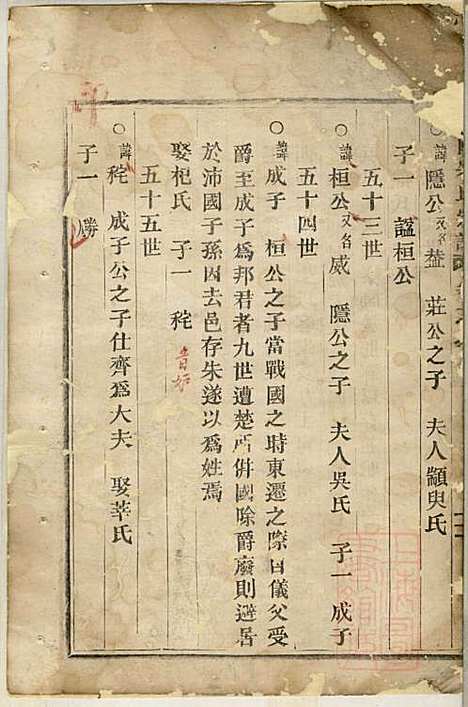 ○諱隱公又名益 莊公之子 夫人顓臾氏
子一 諡桓公
五十三世
○諱桓公又名威 隱公之子 夫人吳氏 子一成子
五十四世
○諱成子 桓公之子當戰國之時東遷之際自儀父受
爵至成子爲邦君者九世遭楚所併國除爵廢則避居
於沛國子孫因去邑存朱遂以爲姓焉
娶祀氏 子一 秺 音妒
五十五世
○諱秺 成子公之子仕齊爲大夫 娶莘氏
子一 勝